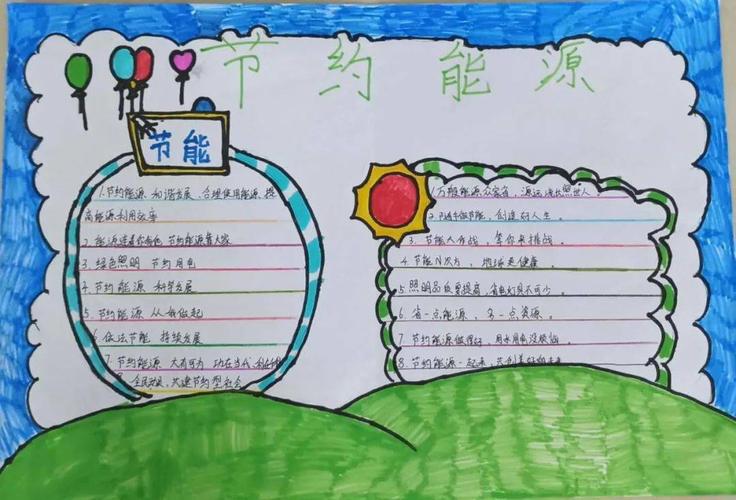 节约能源
节能
1.节约能源 和谐发展、合理使用能源、提
高能源利用效率
2.能源连着你和他 节约能源靠大家
3.绿色照明 节约用电
4.节约能源 科学发展
5.节约能源 从我做起
6.依法节能 持续发展
7.节约能源 大有可为 功在当代
8.全民动员、共建节约型社会
1.万般能源众家省,源远流长照世人。
2.随手做节能,创造好人生。
3.节能大作战,等你来挑战。
4.节能N次方,地球更健康。
5.照明品质要提高,省电灯具不可少。
6.省一点能源、多一点资源。
7.节约能源做得好,用水用电没烦恼。
8.节约能源一起来,共创美好的未来